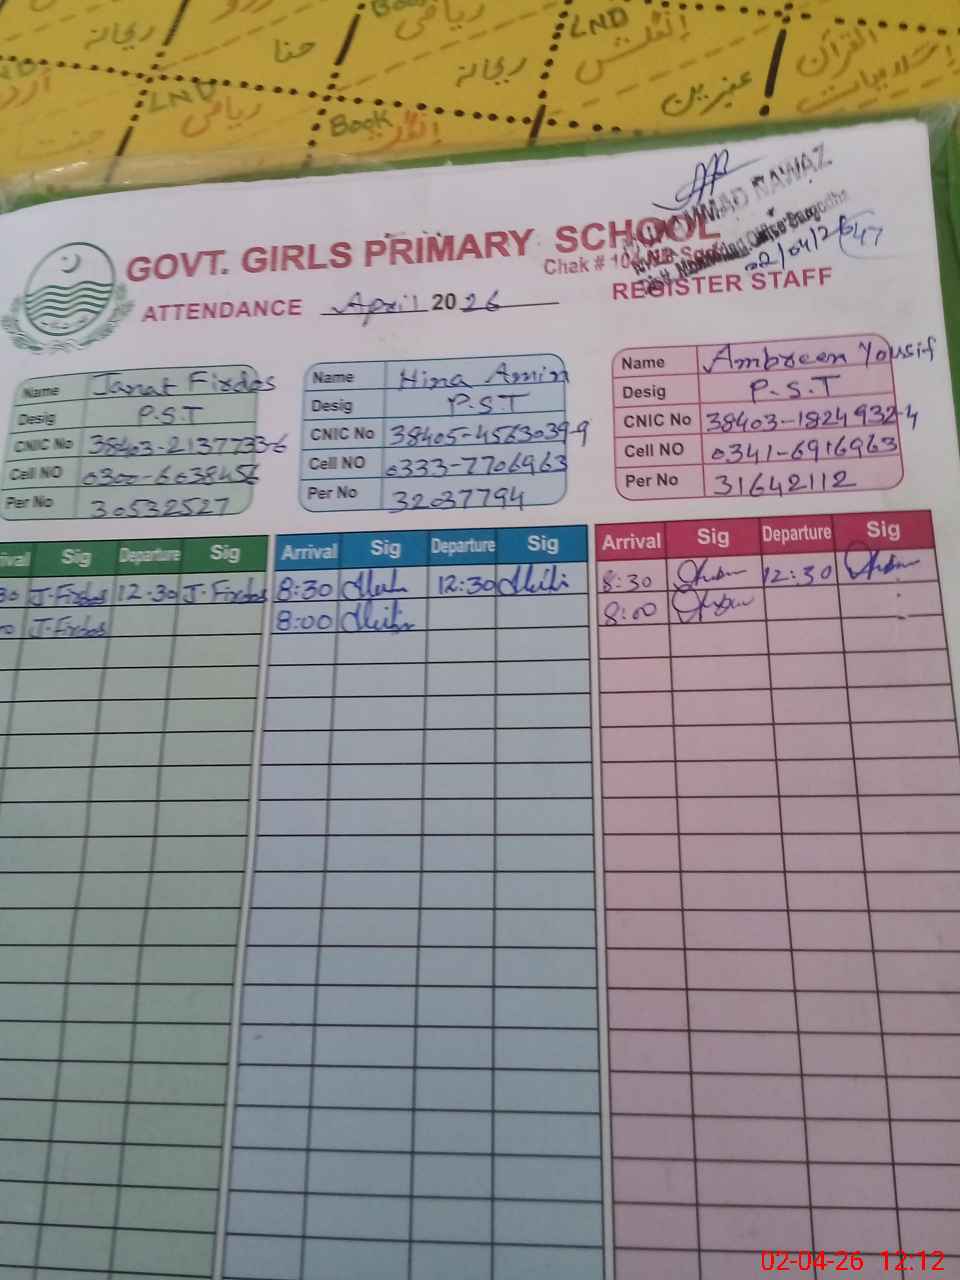 ریحانہ
حنا
ریاضی
Book
LND
انگلش
ریحانہ
القرآن
اسلامیات
عنبرین
LND
ریاضی
Book
GOVT. GIRLS PRIMARY SCHOOL
NAWAZ
Chak # 104
02/04/26
ATTENDANCE April 2026 REGISTER STAFF
Name Janat Firdos
Desig P.S.T
CNIC No 38403-2137733-6
Cell NO 0300-6038456
Per No 30532527
Name Hina Amin
Desig P.S.T
CNIC No 38405-4563039-9
Cell NO 0333-7706963
Per No 32037794
Name Ambreen Yousif
Desig P.S.T
CNIC No 38403-1824932-4
Cell NO 0341-6916963
Per No 31642112
Sig Departure Sig Arrival Sig Departure Sig Arrival Sig Departure Sig
J-Firdos 12:30 J-Firdos 8:30 12:30 8:30 12:30
J-Firdos 8:00 8:00
02-04-26 12:12